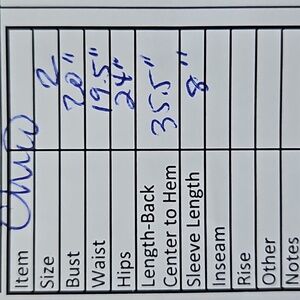 Item Chico
Size 2
Bust 20"
Waist 19.5"
Hips 24"
Length-Back
Center to Hem 35.5"
Sleeve Length 8"
Inseam
Rise
Other
Notes